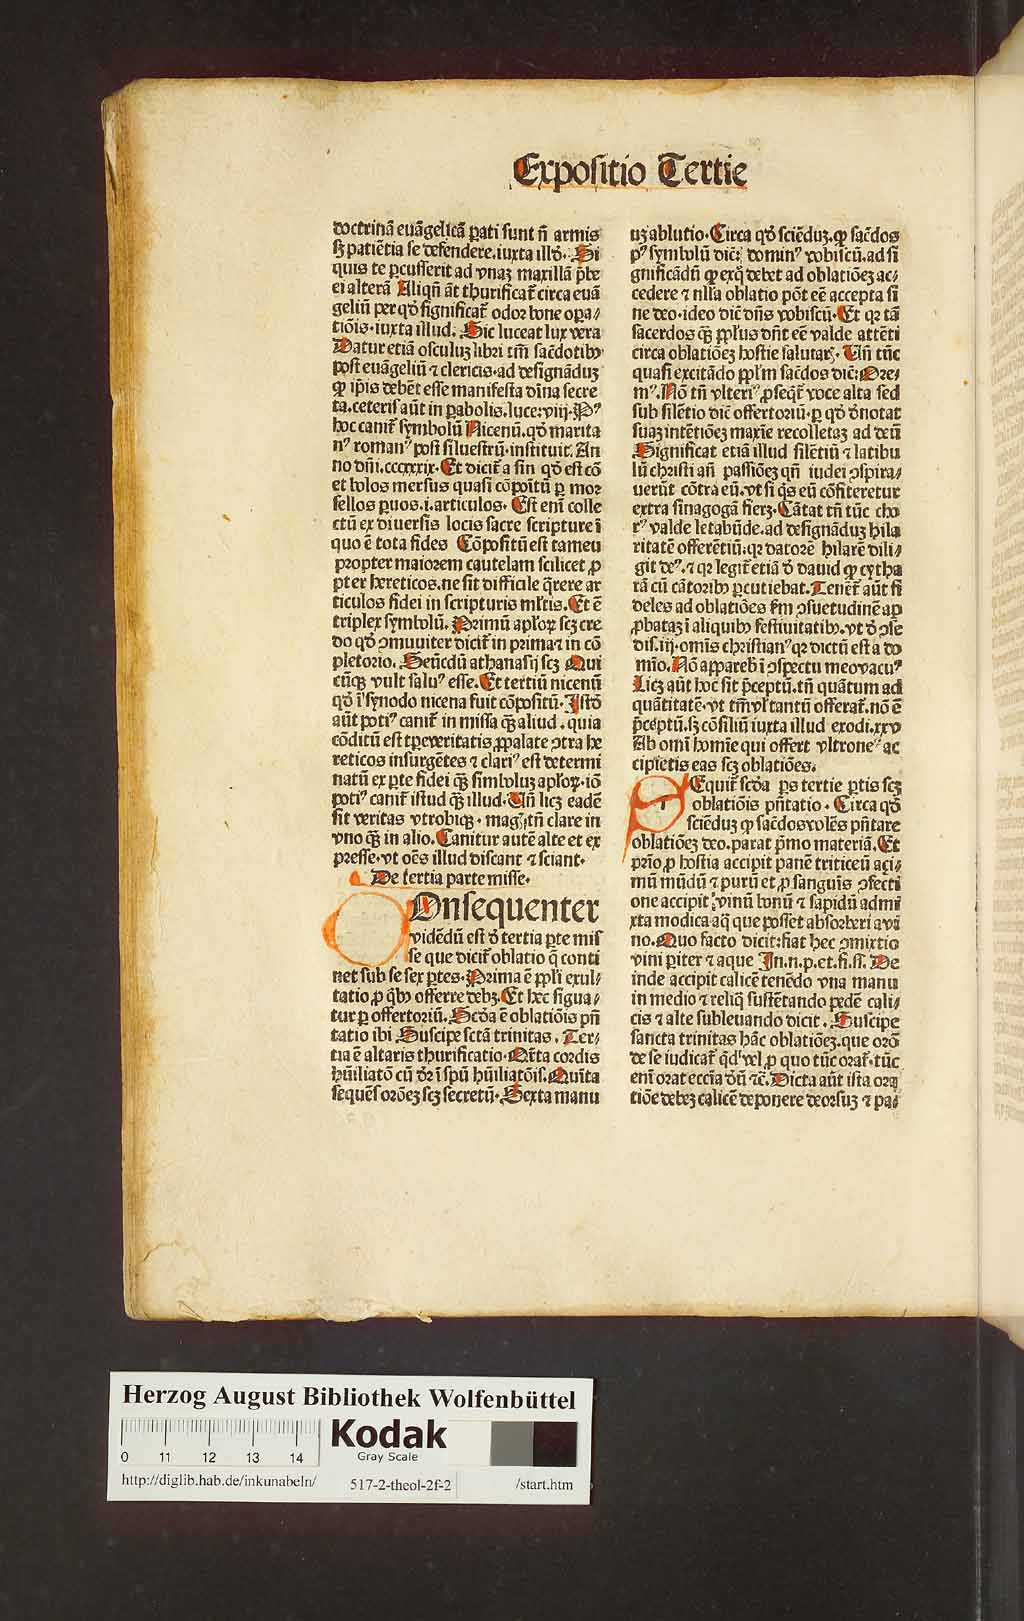 Expositio Tertie
doctrinã euãgelicã ꝑati sunt nõ armis
sꝫ patiẽtia se defendere. iuxta illđ. Si
quis te ꝑcusserit ad vnaꝫ maxillã p̃be
ei alterã Aliqñ ãt thurificat᷑ circa euã
geliũ per qđ significat᷑ odor bone opa/
tiõis. iuxta illud. Sic luceat lux vera
Datur etiã osculuꝫ libri tm̃ sac̃dotibꝰ
post euãgeliũ ⁊ clericis. ad designãduꝫ
ꝙ ip̃is debẽt esse manifesta diĩna secre
ta. ceteris aũt in ꝑabolis. luce: viij. Pꝰ
hoc canit᷑ symbolũ Nicenũ. qđ marita
nꝰ romanꝰ post siluestrũ. instituit. An
no dñi. cccxxxix. Et dicit᷑ a sin qđ est cõ
et bolos mersus quasi cõpõitũ ꝑ mor
sellos ꝑuos. i. articulos. Est eni colle
ctũ ex diuersis locis sacre scripture ĩ
quo ẽ tota fides Cõpositũ est tameu
propter maiorem cautelam scilicet ꝓ
pter hereticos. ne sit difficile q̃rere ar
ticulos fidei in scripturis ml̃tis. Et ẽ
triplex symbolũ. Primũ apl̃oꝝ scꝫ cre
do qđ ↄmuuiter dicit᷑ in prima ⁊ in cõ
pletorio. Scũdũ athanasij scꝫ Qui
cũqꝫ vult saluꝰ esse. Et tertiũ nicenũ
qđ ĩ synodo nicena fuit cõpositũ. Istđ
aũt potiꝰ canit᷑ in missa q̃ꝫ aliud. quia
cõditũ est tꝑe veritatis ꝓpalate ↄtra he
reticos insurgẽtes ⁊ clariꝰ est determi
natũ ex pte fidei q̃ꝫ simboluꝫ apl̃oꝝ. iõ
potiꝰ canit᷑ istud q̃ꝫ illud. Vñ licꝫ eadẽ
sit veritas vtrobiqꝫ. magꝭ tñ clare in
vno q̃ꝫ in alio. Canitur autẽ alte et ex
presse. vt oẽs illud discant ⁊ sciant.
De tertia parte misse.
Onsequenter
videdũ est đ tertia ꝑte mis
se que dicit᷑ oblatio q̃ conti
net sub se sex ꝑtes. Prima ẽ ppl̃i exul/
tatio ꝓ qͥbꝰ offerre debꝫ. Et hec figua/
tur ꝑ offertoriũ. Scđa ẽ oblatiõis pñ
tatio ibi Suscipe sctã trinitas. Ter/
tia ẽ altaris thurificatio. Qr̃ta cordis
hũiliatõ cũ dr̃ ĩ spũ hũiliatõis. Quĩta
sequẽs orõeꝫ scꝫ secretũ. Sexta manu
uꝫ ablutio. Circa qđ sciẽduꝫ. ꝙ sac̃dos
pꝰ symbolũ dic̃: dominꝰ vobiscũ. ad si
gnificãdũ ꝙ exq̃ debet ad oblatiõeꝫ ac/
cedere ⁊ nlla oblatio põt eẽ accepta si
ne deo. ideo dic̃ dñs vobiscũ. Et qr tã
sacerdos q̃ꝫ ppl̃us dñt eẽ valde attẽti
circa oblatiõeꝫ hostie salutarꝭ. Vñ tũc
quasi excitãdo ppl̃m sac̃dos dic̃: Ore/
mꝰ. Nõ tñ vlteriꝰ ꝓseqt᷑ voce alta sed
sub silẽtio dic̃ offertoriũ. ꝑ qđ đnotat
suaꝫ intẽtiõeꝫ maxie recolletaꝫ ad deũ
Significat etiã illud silẽtiũ ⁊ latibu
lũ christi añ passiõeꝫ qñ iudei ↄspira/
uerũt cõtra eũ. vt si q̃s eũ cõfiteretur
extra sinagogã fierꝫ. Cãtat tñ tũc cho
rꝰ valde letabũde. ad designãduꝫ hila
ritatẽ offerẽtiũ: qr datorẽ hilarẽ dili/
git deꝰ. ⁊ qr legit᷑ etiã đ dauid ꝙ cytha
rã cũ cãtoribꝰ ꝑcutiebat. Tenet᷑ aũt fi
deles ad oblatiões ẜm ↄsuetudinẽ ap
ꝓbataꝫ ĩ aliquibꝰ festiuitatibꝰ. vt đ ↄse
dis. iij. omĩs christianꝰ qr dictũ est a do
mĩo. Nõ appareb̃ ĩ ↄspectu meo vacuꝰ
Licꝫ aũt hoc sit p̃ceptũ. tñ quãtum ad
quãtitatẽ. vt tm̃ vl̃ tantũ offerat᷑. nõ ẽ
p̃ceptũ. sꝫ cõsiliũ iuxta illud exodi. xxv
Ab omĩ homĩe qui offert vltroneꝰ ac
cipietis eas scꝫ oblatiões.
Equit᷑ scđa ꝑs tertie ꝑtis scꝫ
oblatiõis pñtatio. Circa qđ
sciẽduꝫ ꝙ sac̃dos volẽs pñtare
oblatiõeꝫ deo. parat p̃mo materiã. Et
prĩo ꝓ hostia accipit panẽ triticeũ açi/
mũ mũdũ ⁊ purũ et ꝓ sanguis ↄfecti
one accipit vinũ bonũ ⁊ sapidũ admi
xta modica aq̃ que posset absorberi a vi
no. Quo facto dicit: fiat hec ↄmixtio
vini ꝑiter ⁊ aque In. n. p. et. fi. ss. De
inde accipit calicẽ tenẽdo vna manu
in medio ⁊ reliq̃ sustẽtando pedẽ cali/
cis ⁊ alte subleuando dicit. Suscipe
sancta trinitas hãc oblatiõeꝫ. que orõ
de se iudicat᷑ qͣd vel ꝓ quo tũc orat᷑. tũc
eni orat ecc̃ia đũ ⁊c̃. Dicta aũt ista ora
tiõe debeꝫ calicẽ deponere deorsuꝫ ⁊ pa/
Herzog August Bibliothek Wolfenbüttel
Kodak
Gray Scale
0 11 12 13 14
http://diglib.hab.de/inkunabeln/ 517-2-theol-2f-2 /start.htm